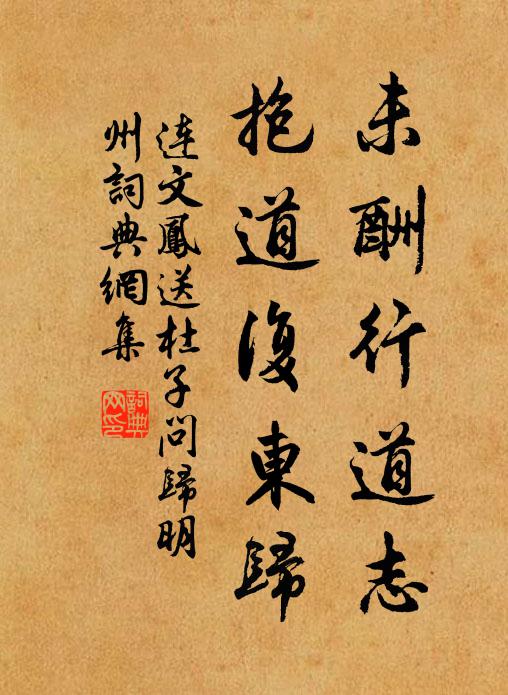 未酬行道志
抱道復東歸
連文鳳送杜子問歸明
州詞典網集
詞典網印